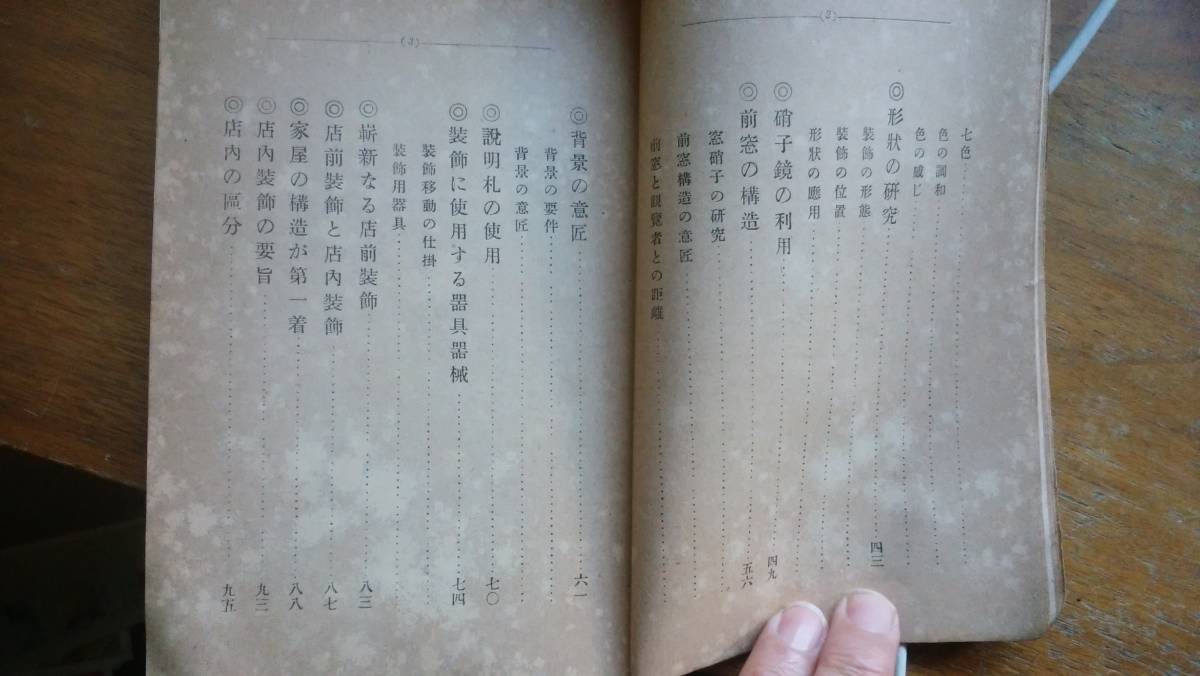 (2)
七色
色の調和
色の感じ
◎形狀の研究 四三
裝飾の形態
裝飾の位置
形狀の應用
◎硝子鏡の利用 四九
◎前窓の構造 五六
窓硝子の研究
前窓構造の意匠
前窓と觀覽者との距離
(3)
◎背景の意匠 六一
背景の要件
背景の意匠
◎說明札の使用 七〇
◎裝飾に使用する器具器械 七四
裝飾移動の仕掛
裝飾用器具
◎嶄新なる店前裝飾 八三
◎店前裝飾と店內裝飾 八七
◎家屋の構造が第一着 八八
◎店內裝飾の要旨 九三
◎店內の區分 九五